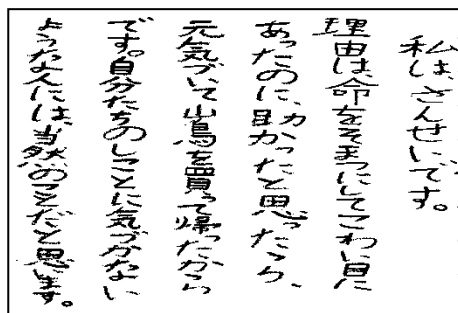 私は、さんせいです。
理由は、命をそまつにしてこわい目に
あったのに、助かったと思ったら、
元気づいて山鳥を買って帰ったから
です。自分たちのしたことに気づかない
ような人には、当然のことだと思います。